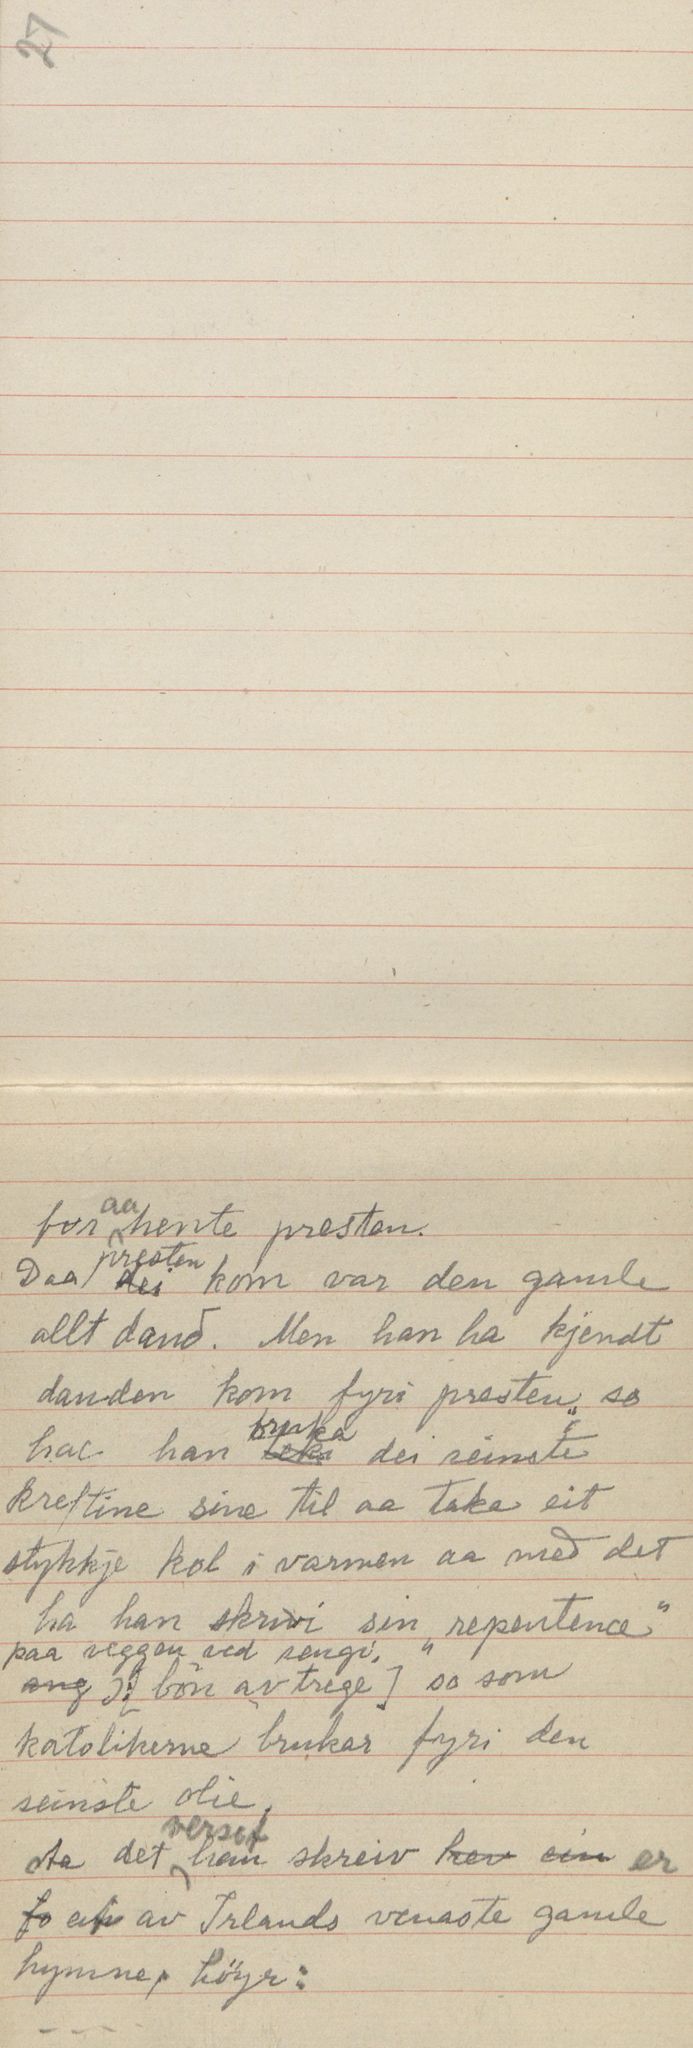 27
for aa hente presten.
Daa presten dei kom var den gamle
allt daud. Men han ha kjendt
dauden kom fyri presten, so
hac han bruka dei seinste
kreftine sine til aa take eit
stykkje kol i varmen aa med det
ha han skrivi sin „repentence"
paa veggen ved sengi,
ang [bön av trege] so som
katolikerne brukar fyri den
seinste olie.
Aa det verset han skreiv hev ein er
fo eit av Irlands venaste gamle
hymne, höyr: